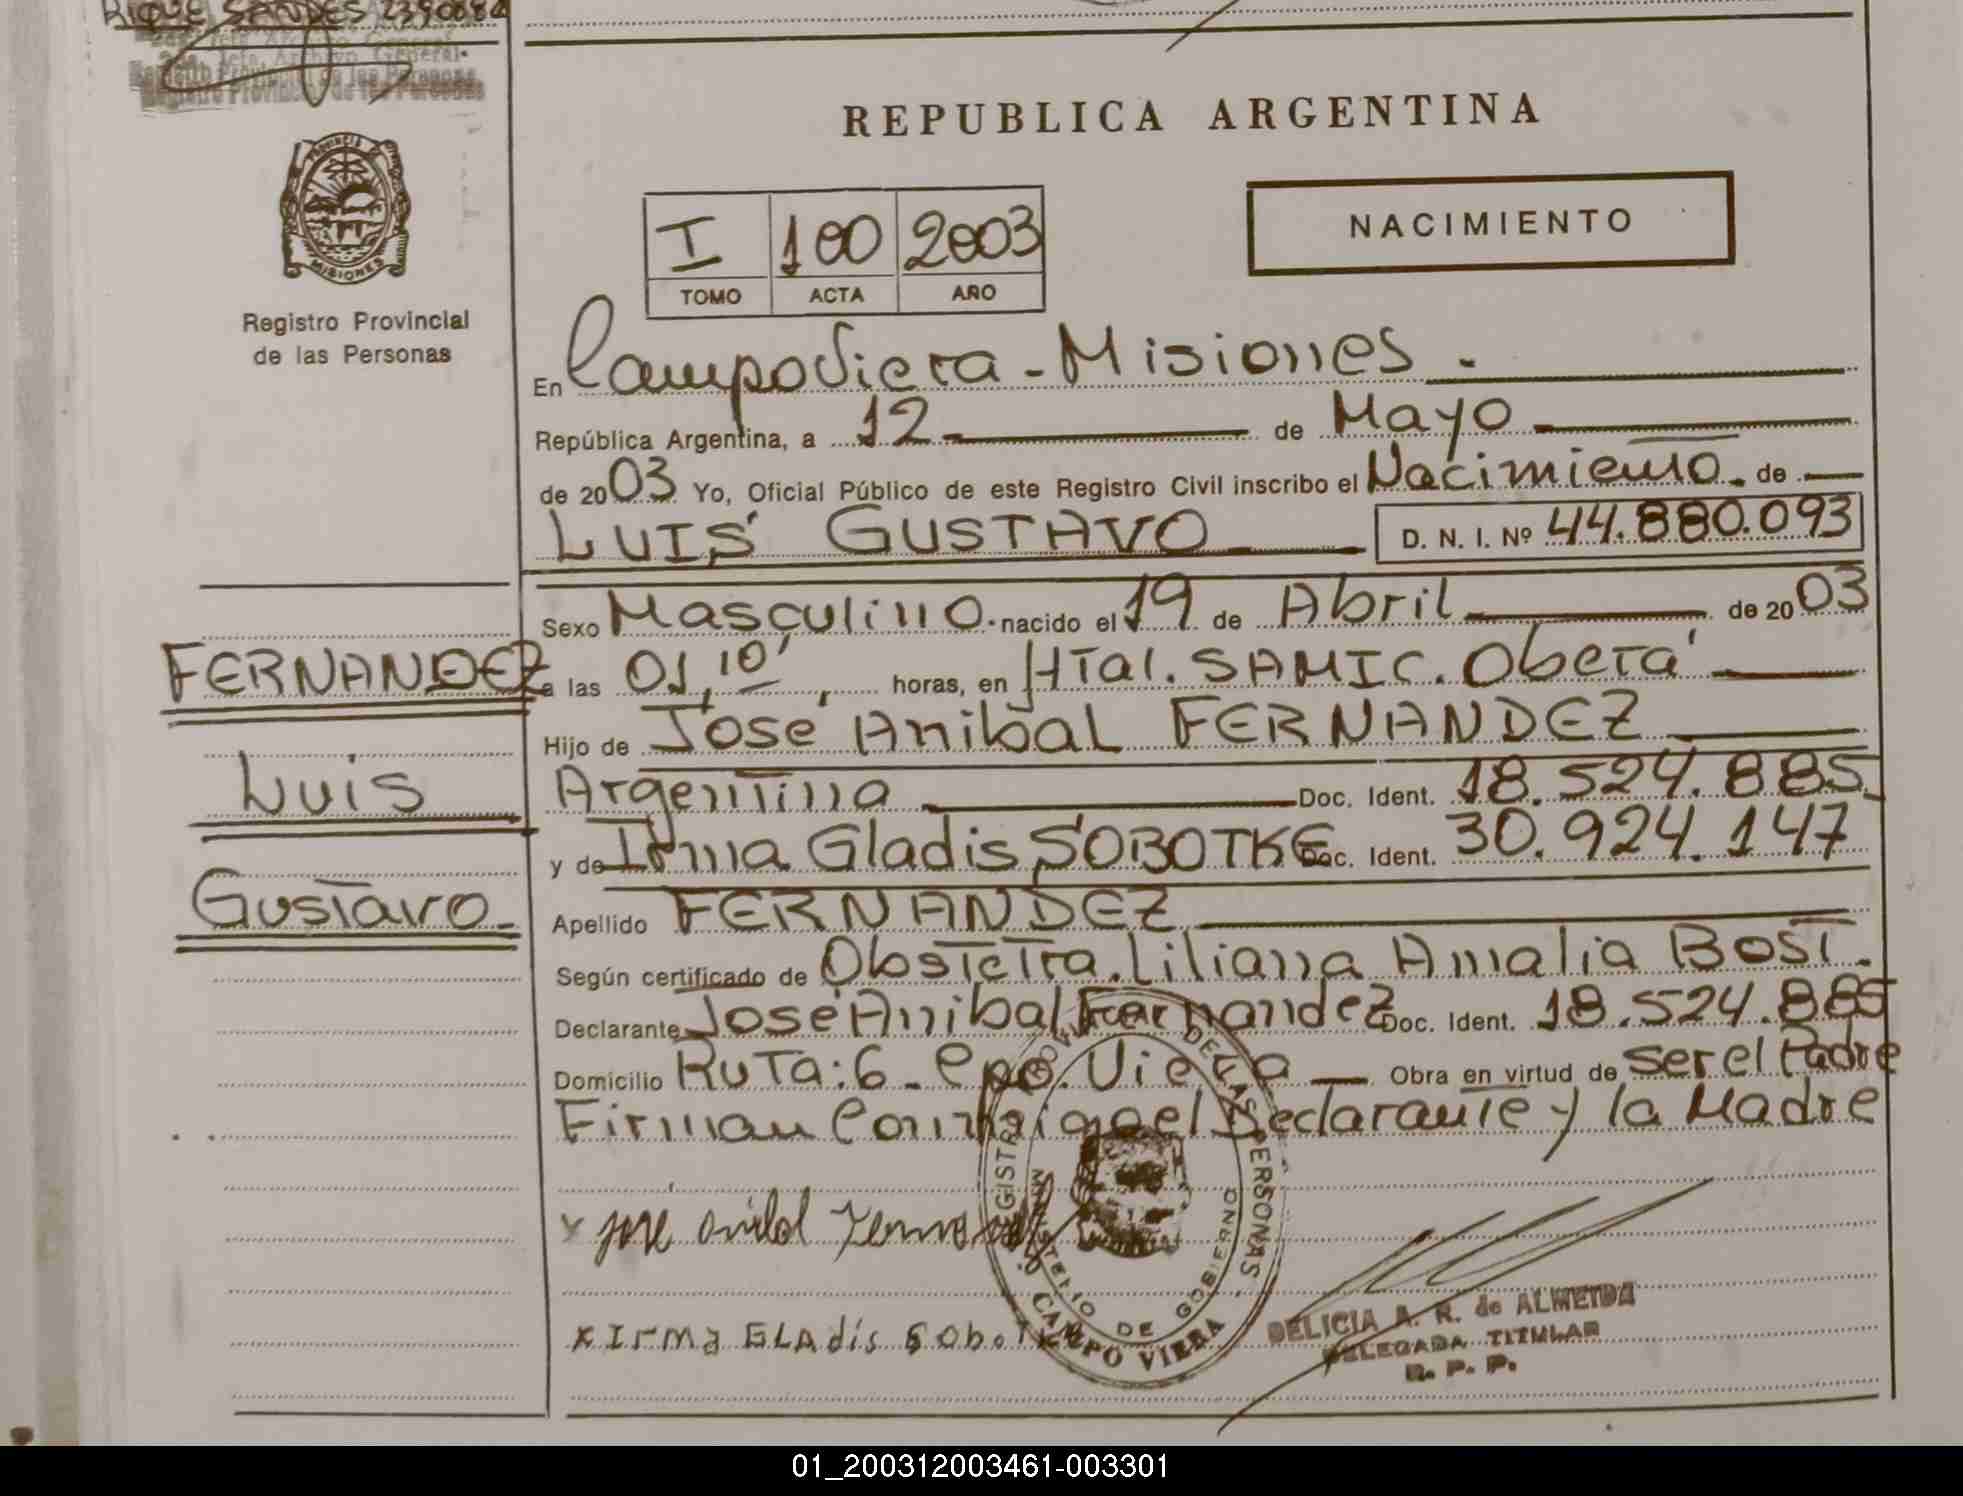 RIQUE SANDES 2390884
Jefe Archivo General
Registro Provincial de las Personas
REPUBLICA ARGENTINA
PROVINCIA DE
MISIONES
Registro Provincial
de las Personas
NACIMIENTO
I 100 2003
TOMO ACTA AÑO
En Campo Viera - Misiones.
República Argentina, a 12 de Mayo
de 2003 Yo, Oficial Público de este Registro Civil inscribo el Nacimiento de
LUIS GUSTAVO D. N. I. Nº 44.880.093
Sexo Masculino. nacido el 19 de Abril de 2003
FERNANDEZ
a las 01,10', horas, en Htal. SAMIC. Oberá
Hijo de José Anibal FERNANDEZ
Luis
Argentina Doc. Ident. 18.524.885
y de Irma Gladis SOBOTKE Doc. Ident. 30.924.147
Gustavo
Apellido FERNANDEZ
Según certificado de Obstetra. Liliana Amalia BOST.
Declarante José Anibal Fernandez Doc. Ident. 18.524.885
Domicilio RUTA: 6 - Cpo. Viera Obra en virtud de ser el Padre
Firman Conmigo el Declarante y la Madre
x José Anibal Fernandez
x Irma GLAdis Sobotke
REGISTRO PROVINCIAL DE LAS PERSONAS
MINISTERIO DE GOBIERNO
CAMPO VIERA
DELICIA A. R. de ALMEIDA
DELEGADA TITULAR
R. P. P.
01_200312003461-003301